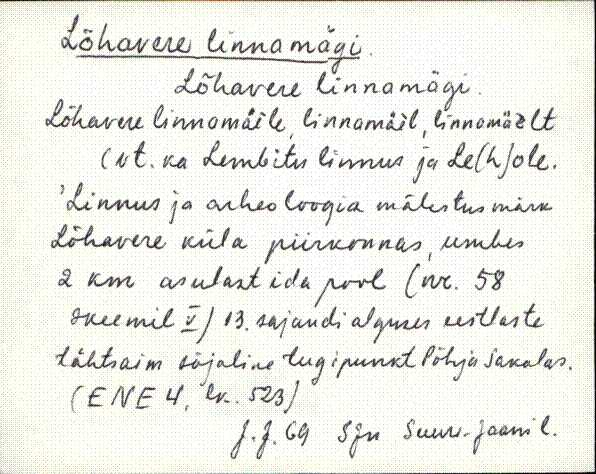 Lõhavere linnamägi.
Lõhavere linnamägi.
Lõhavere linnamäile, linnamäil, linnamäelt
(vt. ka Lembitu linnus ja Le[h]ole.
'Linnus ja arheoloogia mälestusmärk
Lõhavere küla piirkonnas, umbes
2 km asulast ida pool (nr. 58
skeemil V) 13. sajandi alguses eestlaste
tähtsaim sõjaline tugipunkt Põhja Sakalas.
(ENE 4, lk. 523)
J.J. 69 SJn Suure-Jaani l.